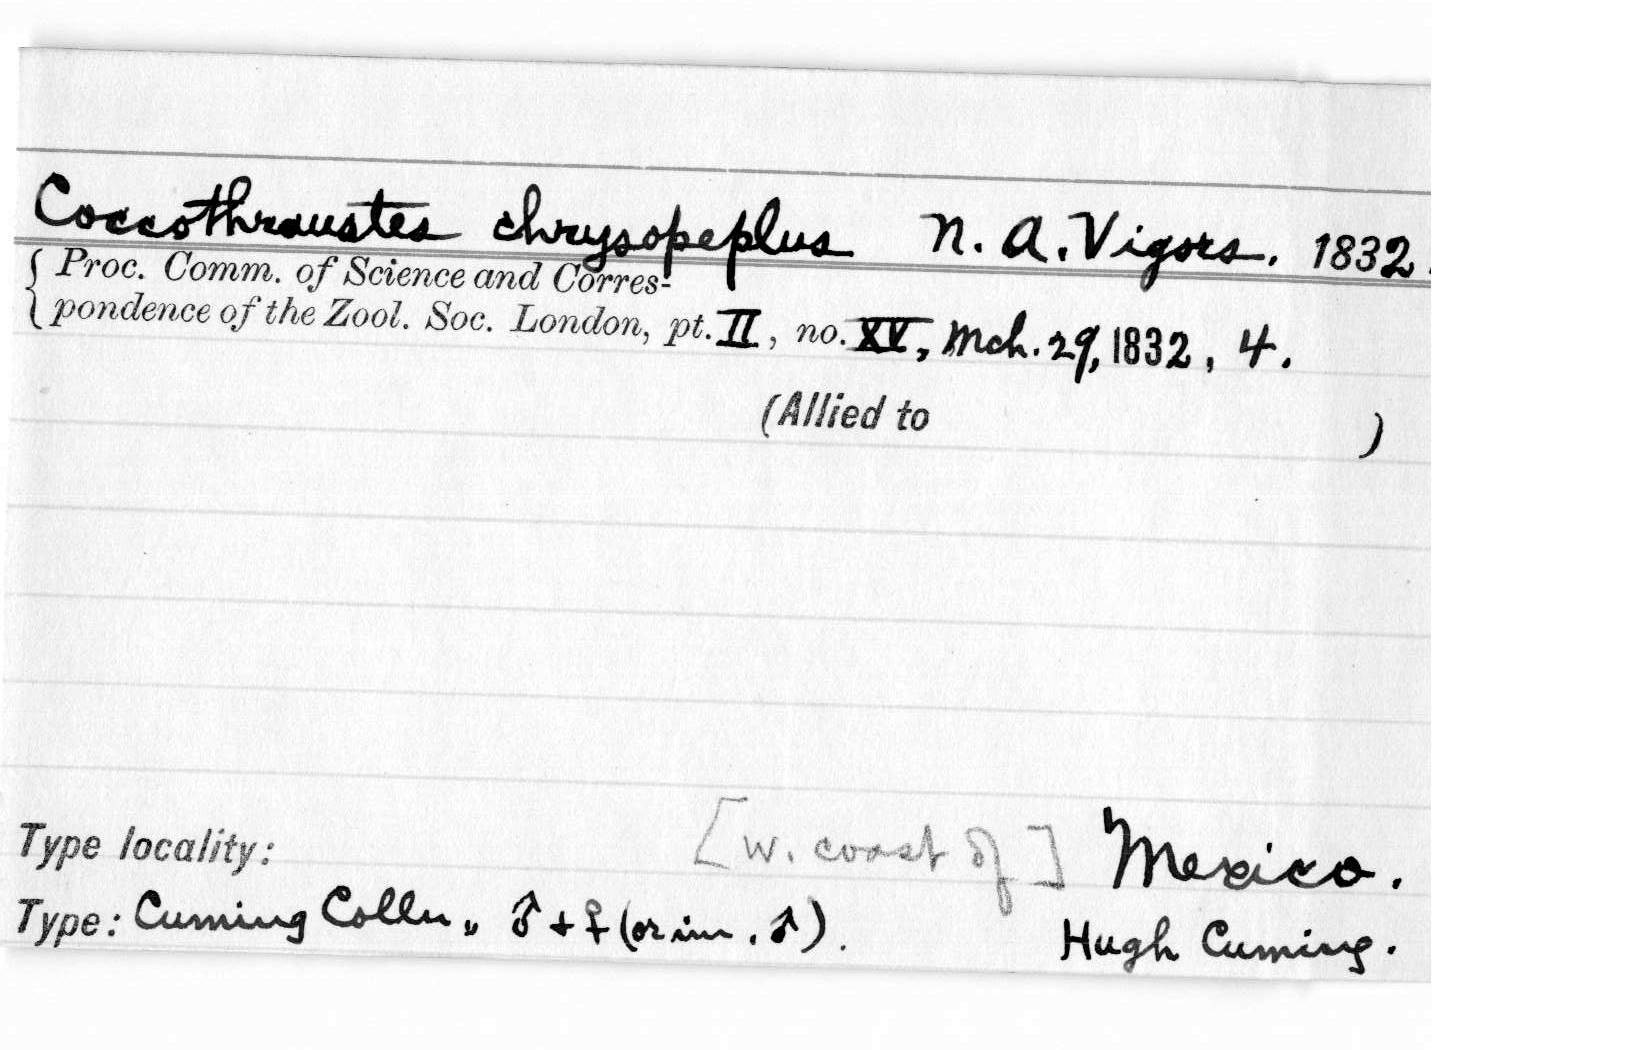 Coccothraustes chrysopeplus N. A. Vigors. 1832.
Proc. Comm. of Science and Corres-
pondence of the Zool. Soc. London, pt. II, no. XV, Mch. 29, 1832, 4.
(Allied to )
Type locality: [W. coast of] Mexico.
Type: Cuming Colln,, ♂ + ♀ (or im. ♂). Hugh Cuming.